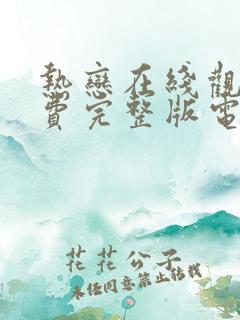 熱戀在綫觀
費完整版電
花花公子
未经同意禁止转载